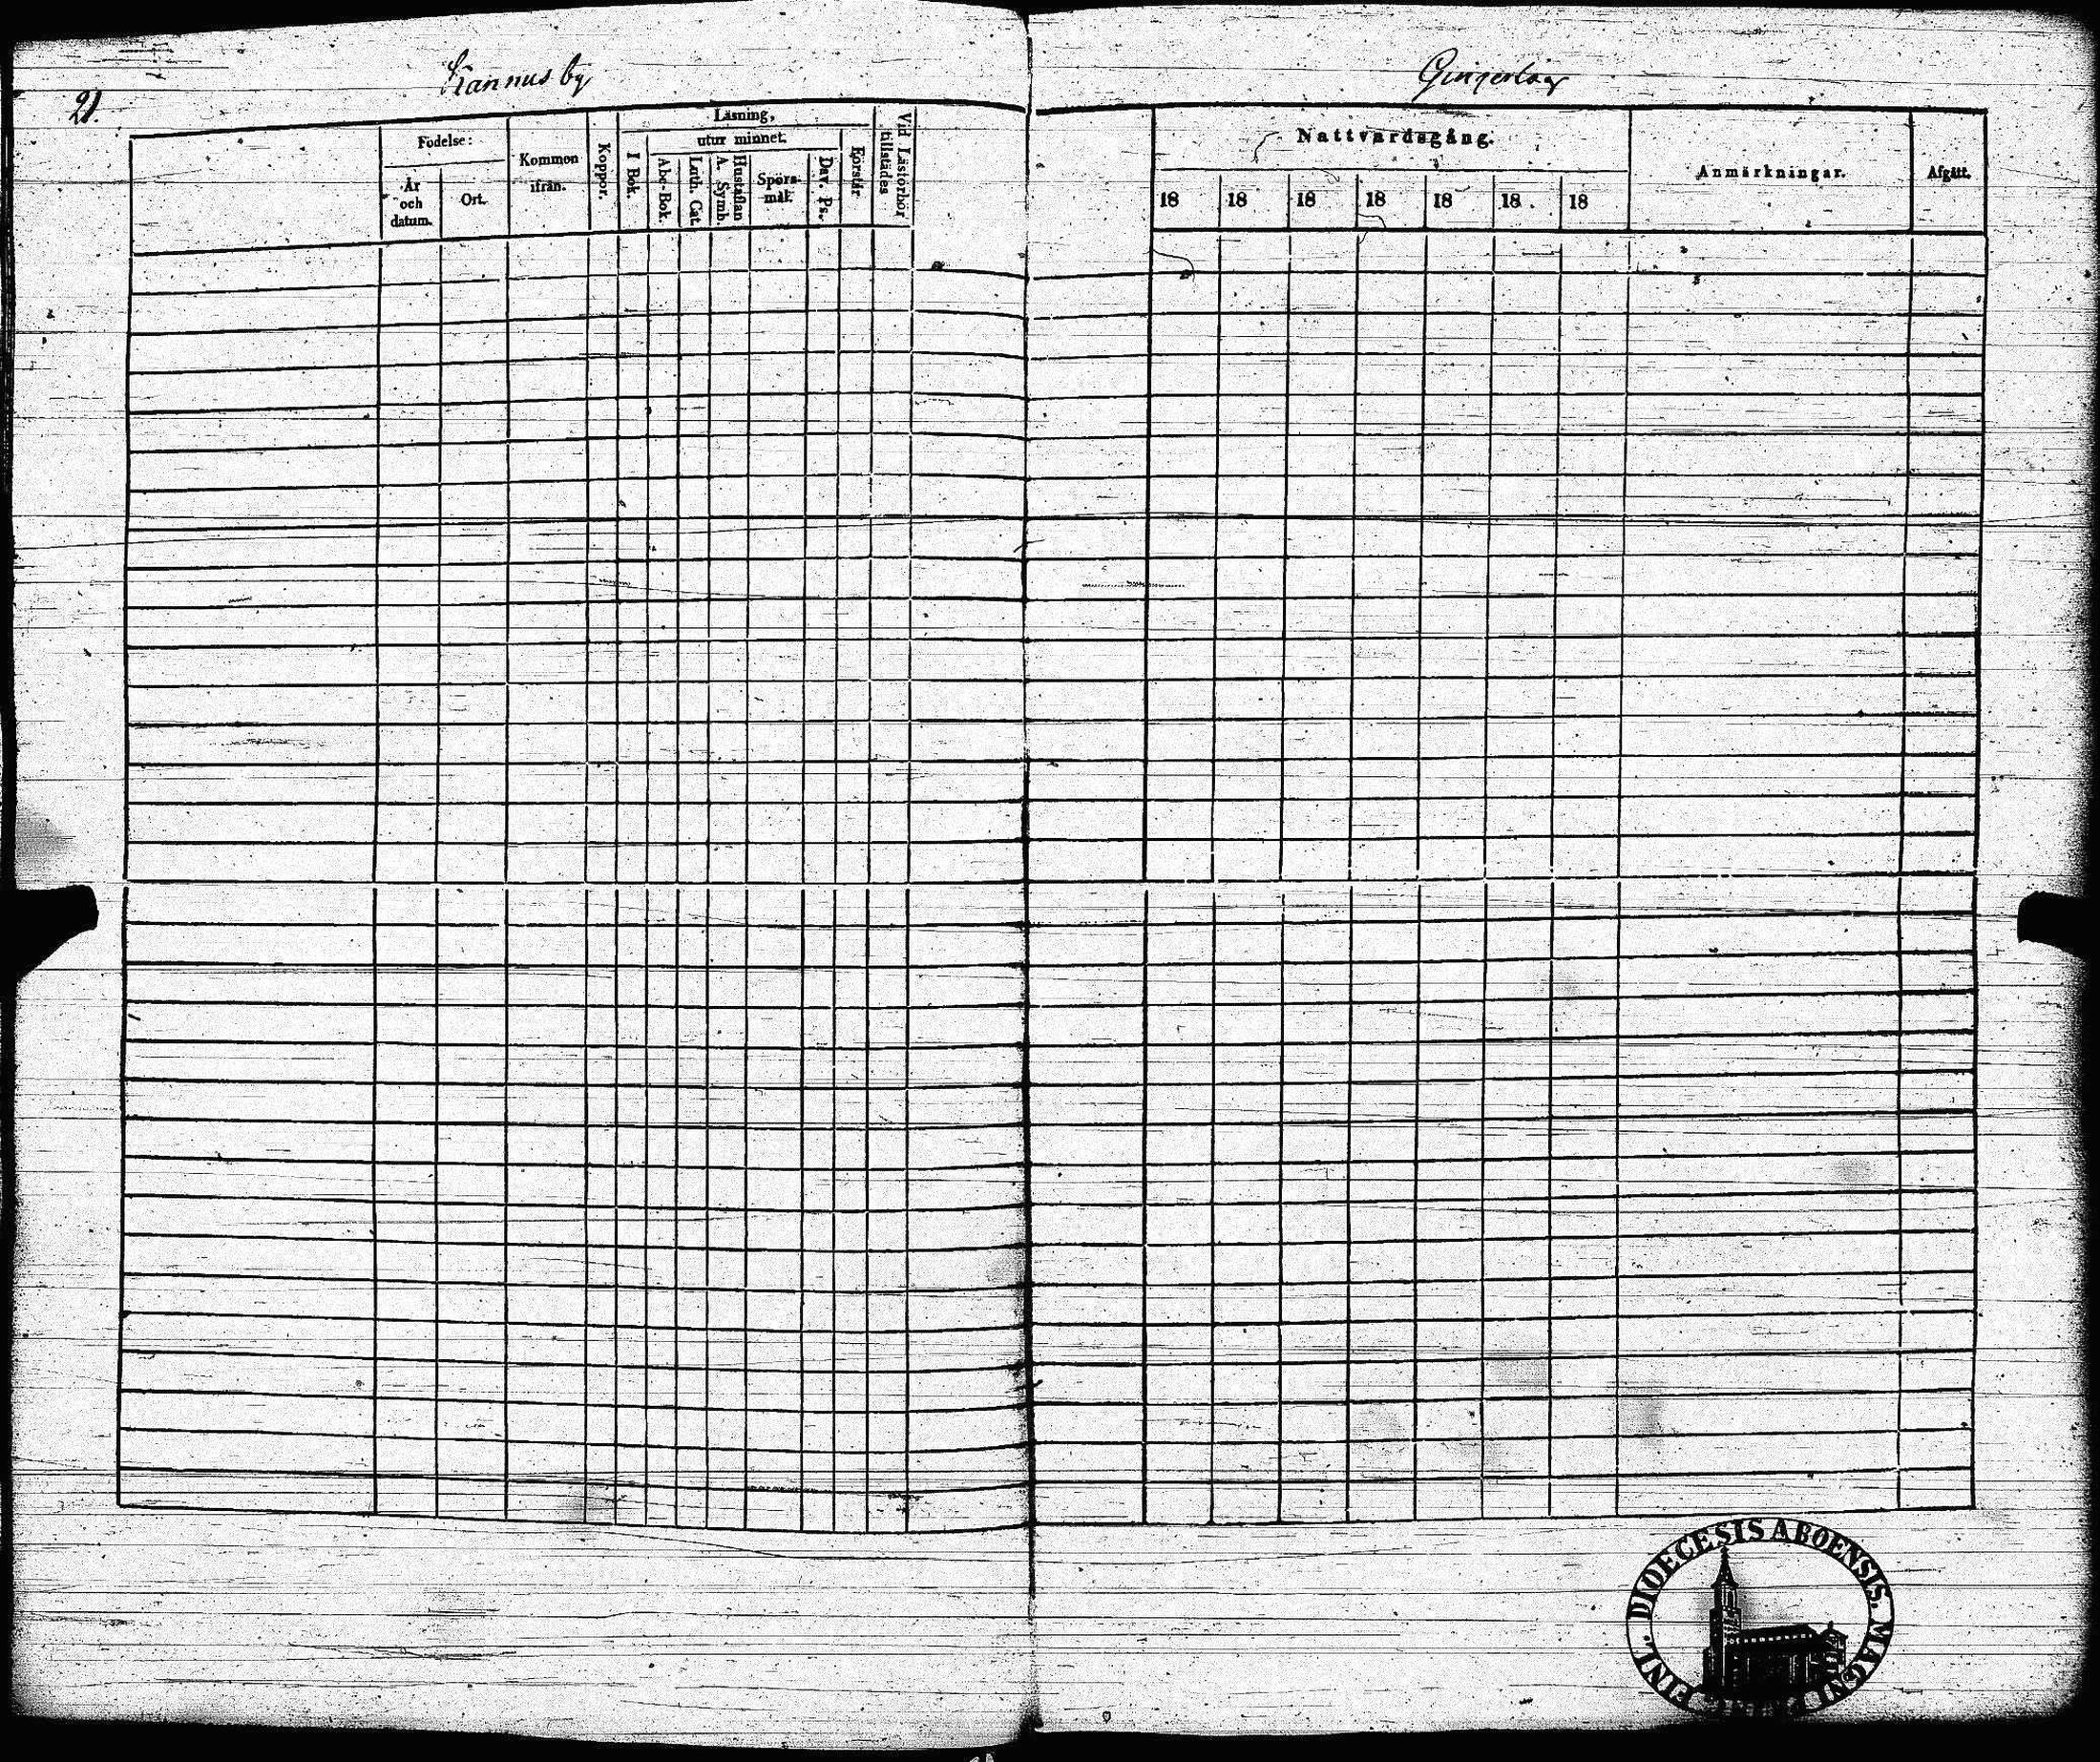 Kannus by
21.
Födelse:
År
och
datum.
Ort.
Kommen
ifrån.
Koppor.
Läsning,
I Bok.
utur minnet.
Abc-Bok.
Luth. Cat.
Hustaflan
A. Symb.
Spörs-
mål.
Dav. Ps.
Förstår
Vid Läsförhör
tillstädes
Nattvardsgång.
18 18 18 18 18 18 18
Anmärkningar.
Afgått.
FINL. DIOECESIS ABOENSIS. MAGNI